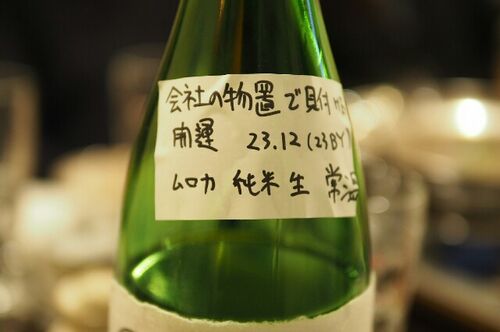 会社の物置で見付
開運 23.12(23BY)
ムロカ 純米生 常温